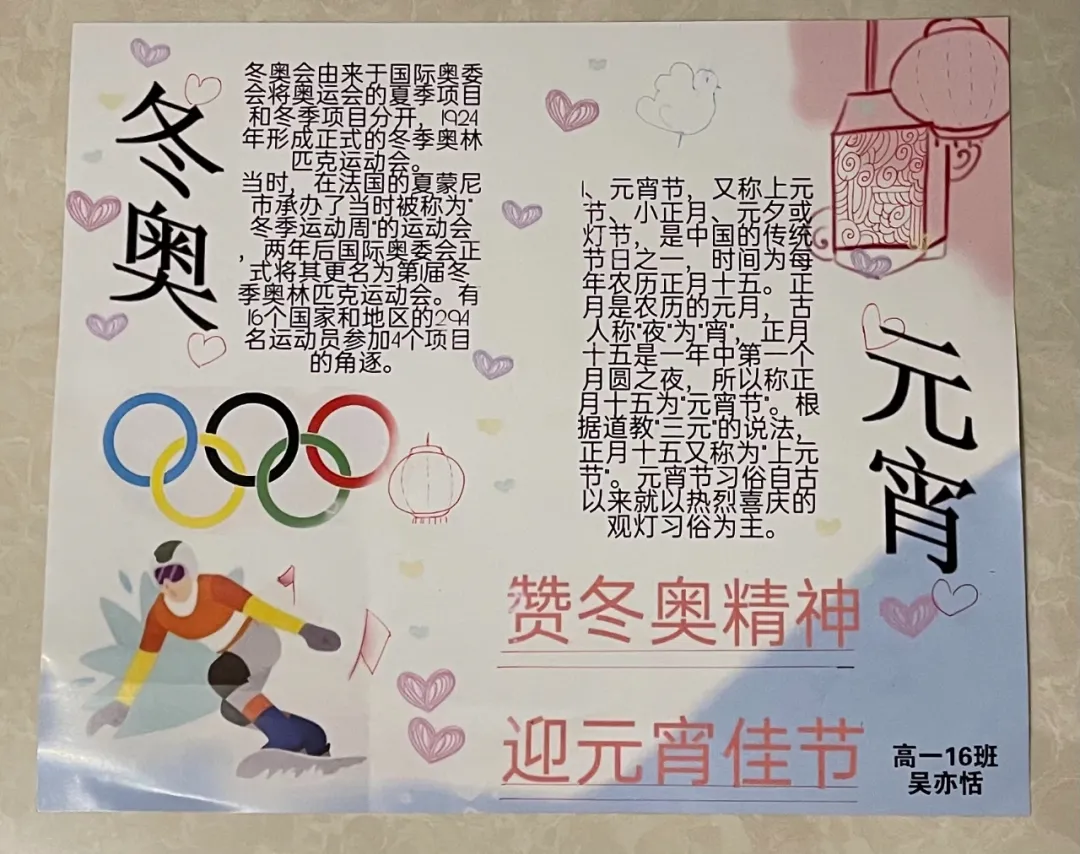 冬奥
冬奥会由来于国际奥委
会将奥运会的夏季项目
和冬季项目分开，1924
年形成正式的冬季奥林
匹克运动会。
当时，在法国的夏蒙尼
市承办了当时被称为"
冬季运动周"的运动会
，两年后国际奥委会正
式将其更名为第1届冬
季奥林匹克运动会。有
16个国家和地区的294
名运动员参加4个项目
的角逐。
1、元宵节，又称上元
节、小正月、元夕或
灯节，是中国的传统
节日之一，时间为每
年农历正月十五。正
月是农历的元月，古
人称"夜"为"宵"，正月
十五是一年中第一个
月圆之夜，所以称正
月十五为"元宵节"。根
据道教"三元"的说法，
正月十五又称为"上元
节"。元宵节习俗自古
以来就以热烈喜庆的
观灯习俗为主。
元宵
赞冬奥精神
迎元宵佳节
高一16班
吴亦恬